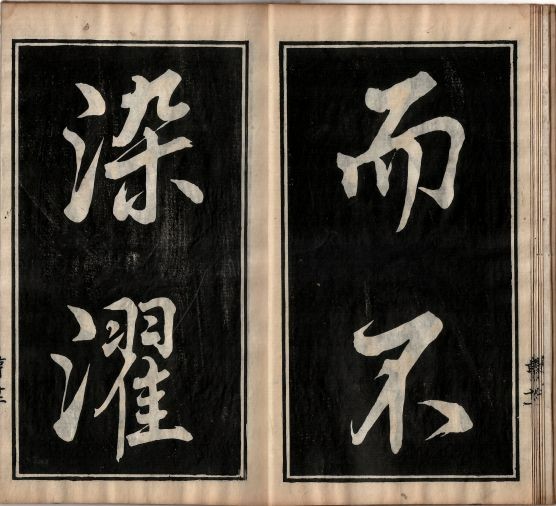 而不
染濯